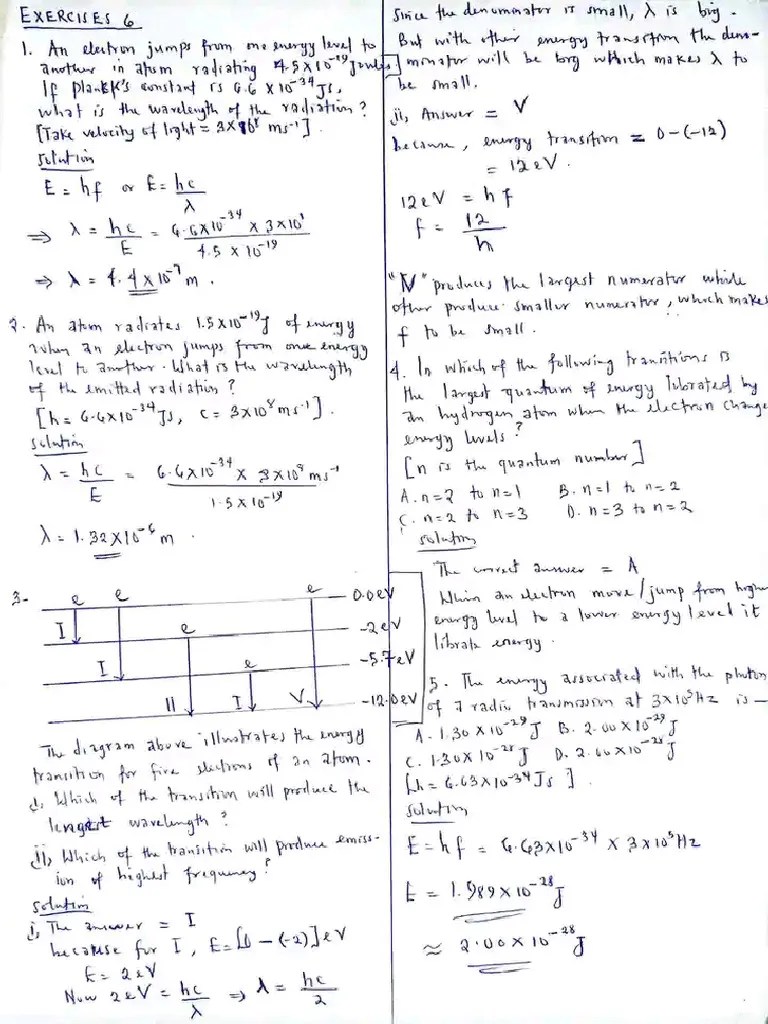 EXERCISES 6
1. An electron jumps from one energy level to
another in atom radiating 4.5 × 10⁻¹⁹ Joules
If Plank's constant is 6.6 × 10⁻³⁴ Js,
what is the wavelength of the radiation?
[Take velocity of light = 3 × 10⁸ ms⁻¹].
Solution
E = hf or E = hc/λ
⇒ λ = hc/E = 6.6×10⁻³⁴ × 3×10⁸ / 4.5 × 10⁻¹⁹
⇒ λ = 4.4 × 10⁻⁷ m.
2. An atom radiates 1.5×10⁻¹⁹J of energy
when an electron jumps from one energy
level to another. What is the wavelength
of the emitted radiation?
[h = 6.6×10⁻³⁴ Js, c = 3×10⁸ ms⁻¹].
Solution
λ = hc/E = 6.6×10⁻³⁴ × 3×10⁸ ms⁻¹ / 1.5×10⁻¹⁹
λ = 1.32×10⁻⁶ m.
3. e e e 0.0eV
I e -2eV
I e -5.7eV
II I V -12.0eV
The diagram above illustrates the energy
transition for five electrons of an atom.
i, Which of the transition will produce the
longest wavelength?
ii, Which of the transition will produce emiss-
ion of highest frequency?
Solution
i, The answer = I
because for I, E = [0 - (-2)] eV
E = 2eV
Now 2eV = hc/λ ⇒ λ = hc/2
Since the denominator is small, λ is big.
But with other energy transition the deno-
minator will be big which makes λ to
be small.
ii, Answer = V
because, energy transition = 0-(-12)
= 12eV.
12eV = hf
f = 12/h
"V" produces the largest numerator while
other produce smaller numerator, which makes
f to be small.
4. In which of the following transitions is
the largest quantum of energy librated by
an hydrogen atom when the electron change
energy levels?
[n is the quantum number]
A. n=2 to n=1 B. n=1 to n=2
C. n=2 to n=3 D. n=3 to n=2
Solution
The correct answer = A
When an electron move/jump from higher
energy level to a lower energy level it
librate energy.
5. The energy associated with the photon
of a radio transmission at 3×10⁵Hz is —
A. 1.30 × 10⁻²⁹ J B. 2.00 × 10⁻²⁹ J
C. 1.30 × 10⁻²⁸ J D. 2.00 × 10⁻²⁸ J
[h = 6.63×10⁻³⁴ Js].
Solution
E = hf = 6.63×10⁻³⁴ × 3×10⁵ Hz
E = 1.989 × 10⁻²⁸ J
≈ 2.00 × 10⁻²⁸ J